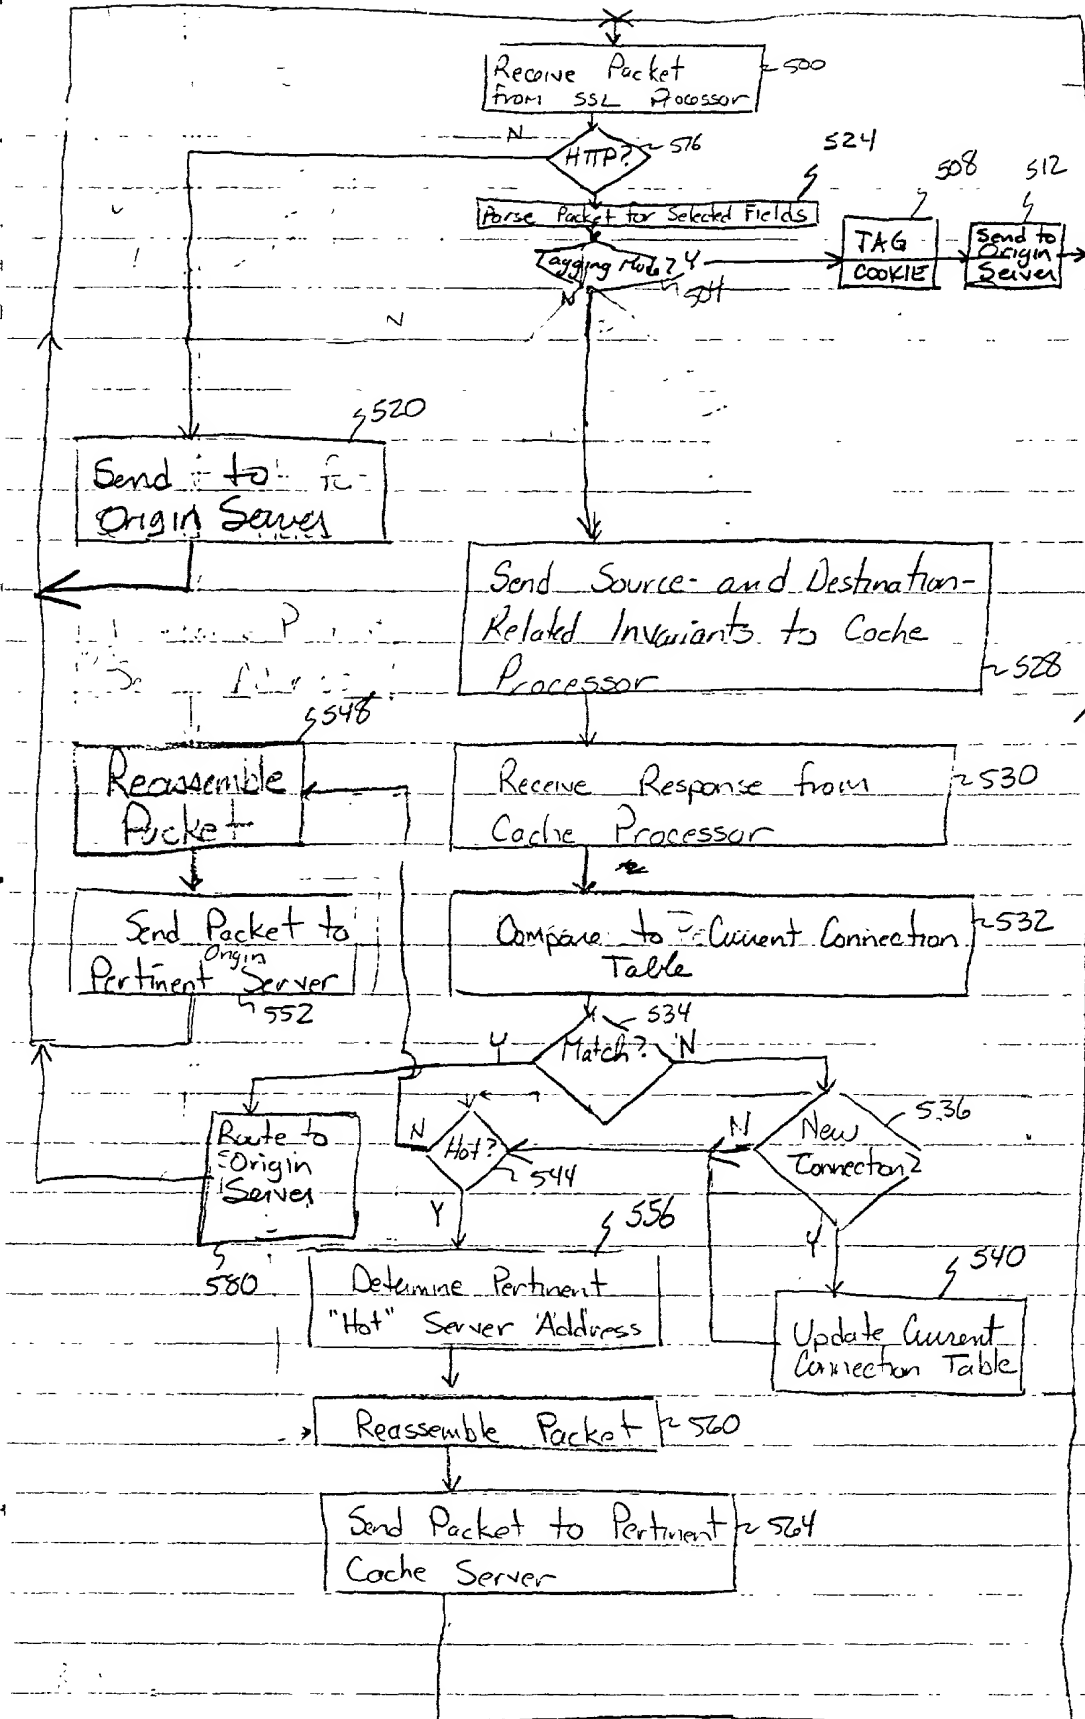 Receive Packet
From SSL Processor
500
N
HTTP?
516
524
Parse Packet for Selected Fields
508
512
Tagging Mode? Y
504
N
TAG
COOKIE
Send to
Origin
Server
N
520
Send to
Origin Server
Send Source- and Destination-
Related Invariants to Cache
Processor
528
548
Reassemble
Packet
Receive Response from
Cache Processor
530
Send Packet to
Origin
Pertinent Server
552
Compare to Current Connection
Table
532
534
Y
Match?
N
Route to
Origin
Server
580
N
Hot?
544
Y
N
New
Connection?
536
Y
556
Determine Pertinent
"Hot" Server Address
540
Update Current
Connection Table
Reassemble Packet
560
Send Packet to Pertinent
Cache Server
564